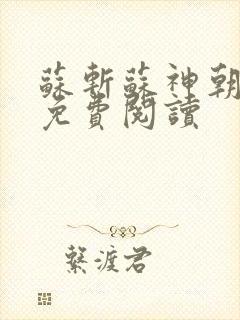 蘇斬蘇神朝
免費閱讀
繫渡君